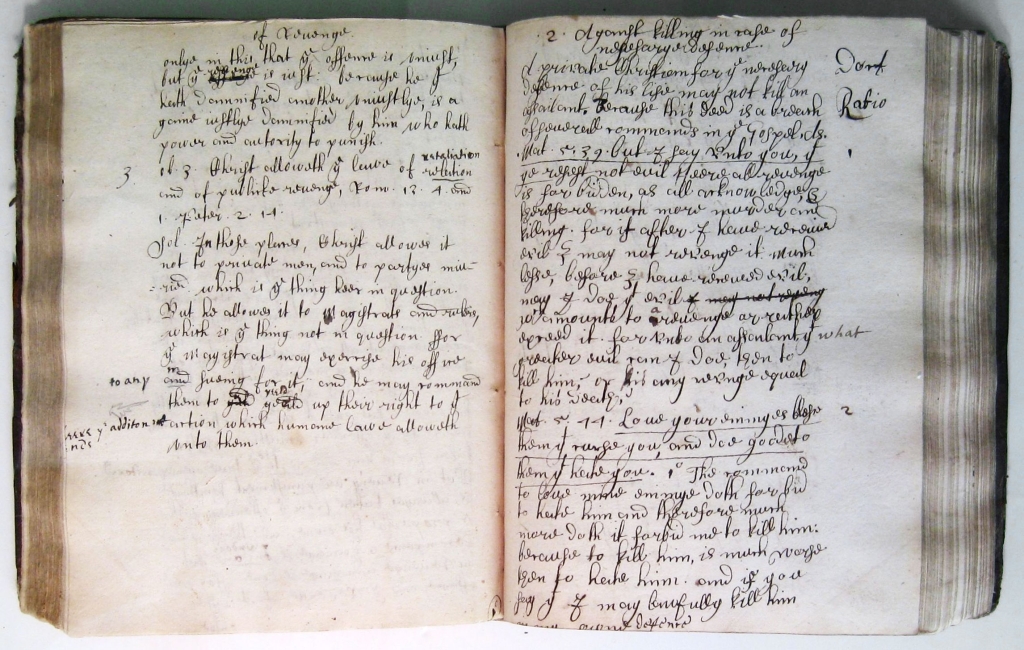 of Revenge.
onlye in this, that ye offence is uniust,
but ye is iust: because he yt
hath damnified another uniustlye, is a
gaine iustlye damnified by him who hath
power and autority to punish.
3 ob. 3. Christ alloweth ye lawe of retaliation
and of publike revenge, Rom. 13. 4. and
1. Peter. 2. 14.
Sol. In those places, Christ allowes it
not to private men, and to partyes
which is ye thing heer in question.
But he allowes it to Magistrats and rulers,
which is ye thing not in question ffor
ye Magistrat may exercise his office
to any in sueing for it, and he may command
them to yeild up their right to yt
action which humane lawe alloweth
unto them.
2. Against killing in case of
necessarye defence.
A private Christian for ye necessary Doct
defence of his life may not kill an
assailant, Because this deed is a breach Ratio
of generall commands in ye Gospel, as.
Mat. 5. 39. But I say unto you, yt 1
ye resist not evil. Heere all revenge
is forbidden, as all acknowledge, &
therefore much more murder and
killing. for if after I have received
evil I may not revenge it. Much
lesse, before I have received evil,
may I doe yt evil
amounts to a revenge or rather
exceed it. for unto an assailant what
greater evil can I doe, then to
kill him; or is any revenge equal
to his death;
Mat. 5. 44. Love your enimyes blesse 2
them yt curse you, and doe good to
them yt hate you. 1o The command
to love mine enimye doth forbid
to hate him and therefore much
more doth it forbid me to kill him:
because to kill him, is much worse
then to hate him. and if you
say yt I may lawfully kill him
defence